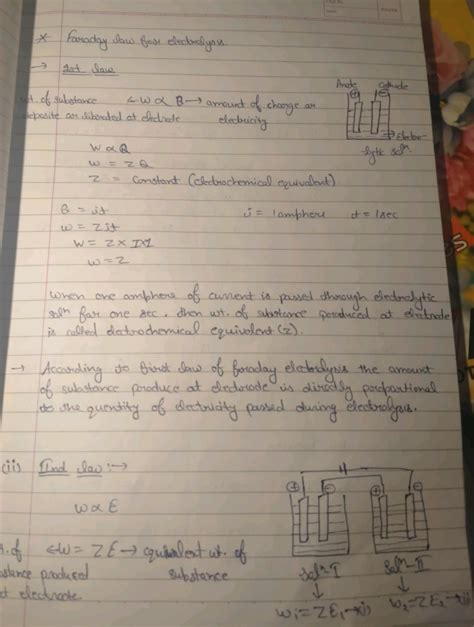 * Faraday law for electrolysis
→ Ist law
Anode Cathode
wt. of substance ← W ∝ Q → amount of charge or
deposite or liberated at electrode electricity
Electro-
lytic solⁿ
W ∝ Q
W = ZQ
Z = Constant (electrochemical equivalent)
Q = it i = 1 amphere t = 1 sec
W = Zit
W = Z × 1×1
W = Z
When one amphere of current is passed through electrolytic
solⁿ for one sec, then wt. of substance produced at electrode
is called electrochemical equivalent (Z).
→ According to first law of faraday electrolysis the amount
of substance produce at electrode is directly propotional
to the quantity of electricity passed during electrolysis.
(ii) IInd law :→
W ∝ E
+ - + -
t. of ← W = ZE → equivalent wt. of
stance produced substance
t electrode
Solⁿ-I Solⁿ-II
W₁ = ZE₁ →(i) W₂ = ZE₂ →(ii